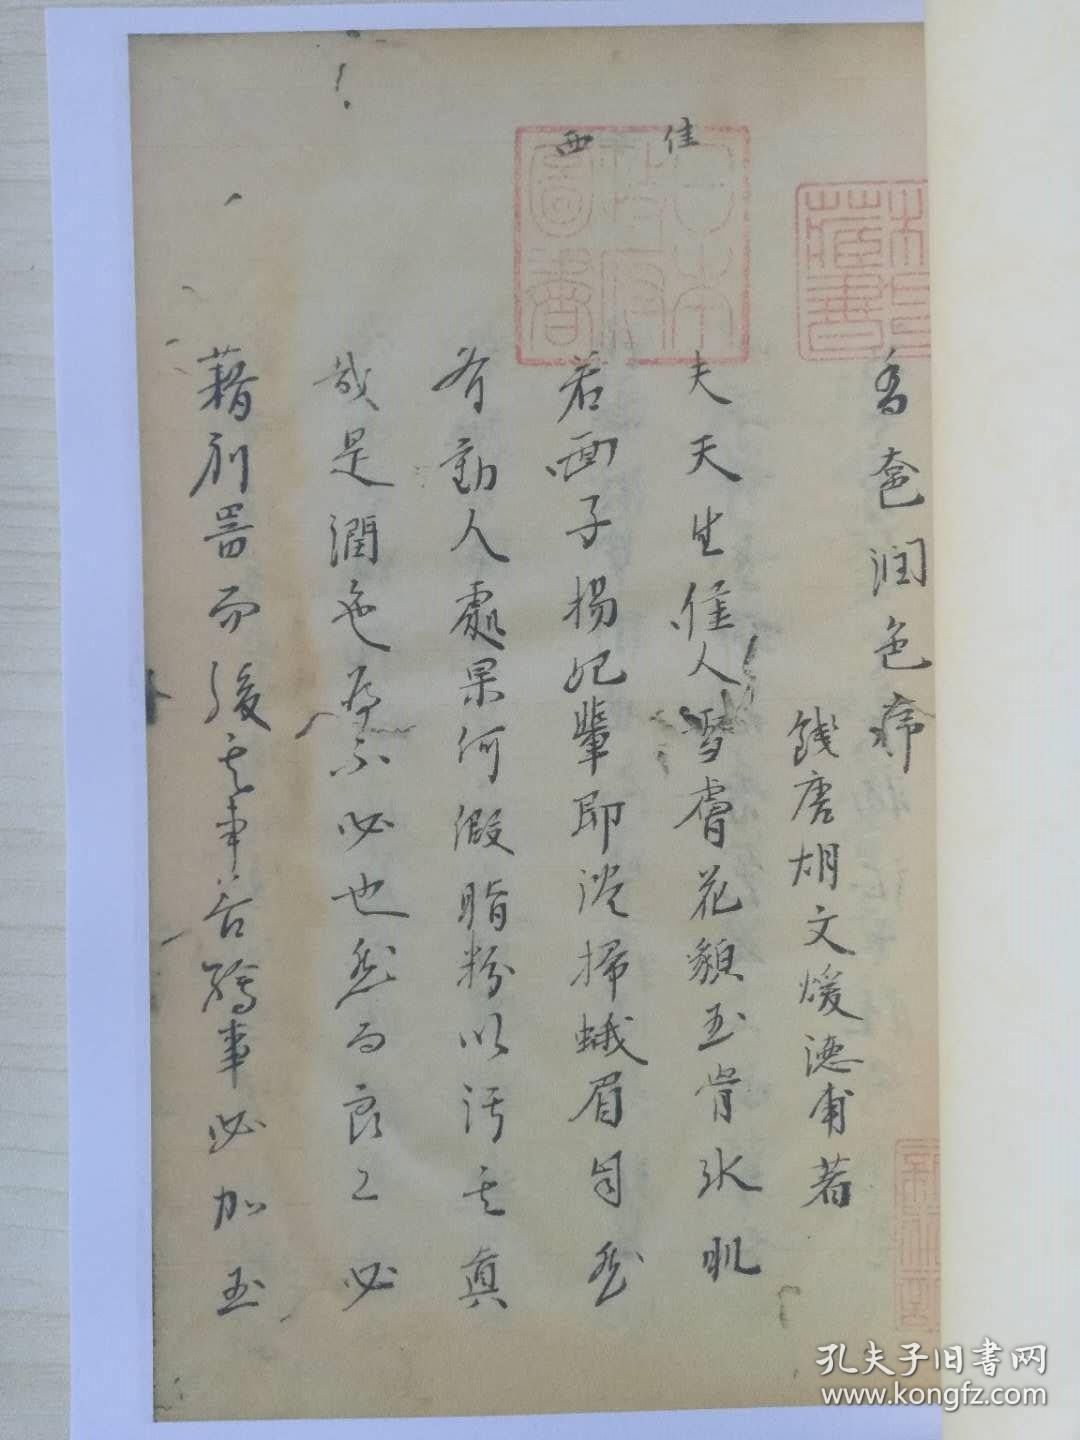 香奩潤色序
錢唐胡文煥德甫著
佳
夫天生佳人雪膚花貌玉骨冰肌
西
若西子楊妃輩即淡掃蛾眉自然
有動人處果何假脂粉以污其真
哉是潤色為不必也然而良工必
藉利器而後其事善驕事必加玉
圖書
藏書
孔夫子旧书网
www.kongfz.com